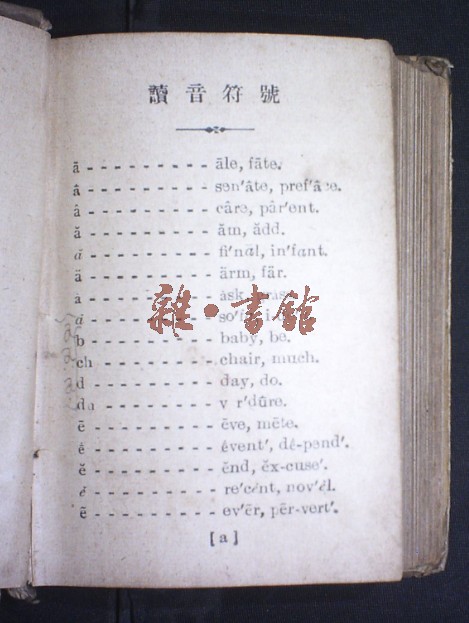 讀音符號
ā - - - - - - - - - - āle, fāte.
â - - - - - - - - - - sen′âte, pref′âce.
â - - - - - - - - - - câre, pâr′ent.
ă - - - - - - - - - - ăm, ădd.
ȧ - - - - - - - - - - fi′nȧl, in′fant.
ä - - - - - - - - - - ärm, fär.
a - - - - - - - - - - ȧsk
雜·書館
b - - - - - - - - - - baby, be.
ch - - - - - - - - - - chair, much.
d - - - - - - - - - - day, do.
du - - - - - - - - - - v r′dûre.
ē - - - - - - - - - - ēve, mēte.
ê - - - - - - - - - - êvent′, dê-pend′.
ĕ - - - - - - - - - - ĕnd, ĕx-cuse′.
ė - - - - - - - - - - re′cėnt, nov′ėl.
ē - - - - - - - - - - ev′ēr, pēr-vert′.
[a]